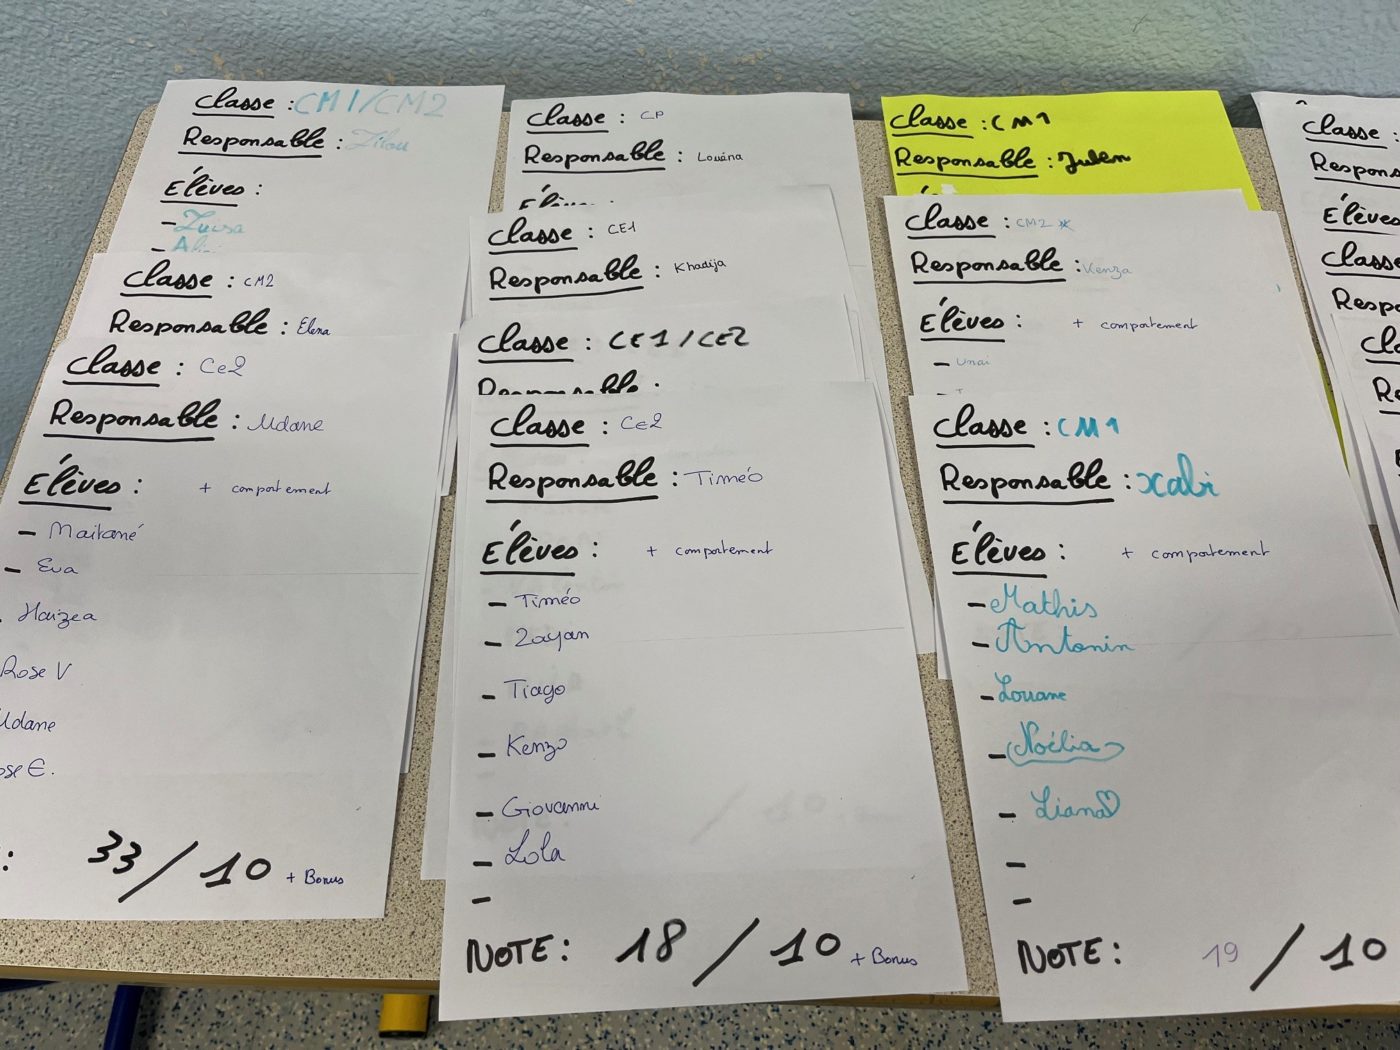 Classe : CM1/CM2
Responsable : Zilou
Élèves :
- Luisa
Classe : CM2
Responsable : Elena
Classe : Ce2
Responsable : Udane
Élèves : + comportement
- Maitané
- Eva
Haizea
Rose V
Udane
ose E.
: 33 / 10 + Bonus
Classe : CP
Responsable : Louána
Élèves
Classe : CE1
Responsable : Khadija
Classe : CE1/CE2
Responsable :
Classe : CE2
Responsable : Timéo
Élèves : + comportement
- Timéo
- Zayan
- Tiago
- Kenzo
- Giovanni
- Lola
-
NOTE : 18 / 10 + Bonus
Classe : CM1
Responsable : Julen
Classe : CM2
Responsable : Kenza
Élèves : + comportement
- Unai
Classe : CM1
Responsable : xabi
Élèves : + comportement
- Mathis
- Antonin
- Louane
- Noélia
- Liana♡
-
-
NOTE : 19 / 10
Classe :
Respons
Élèves
Classe
Respo
Cla
Re